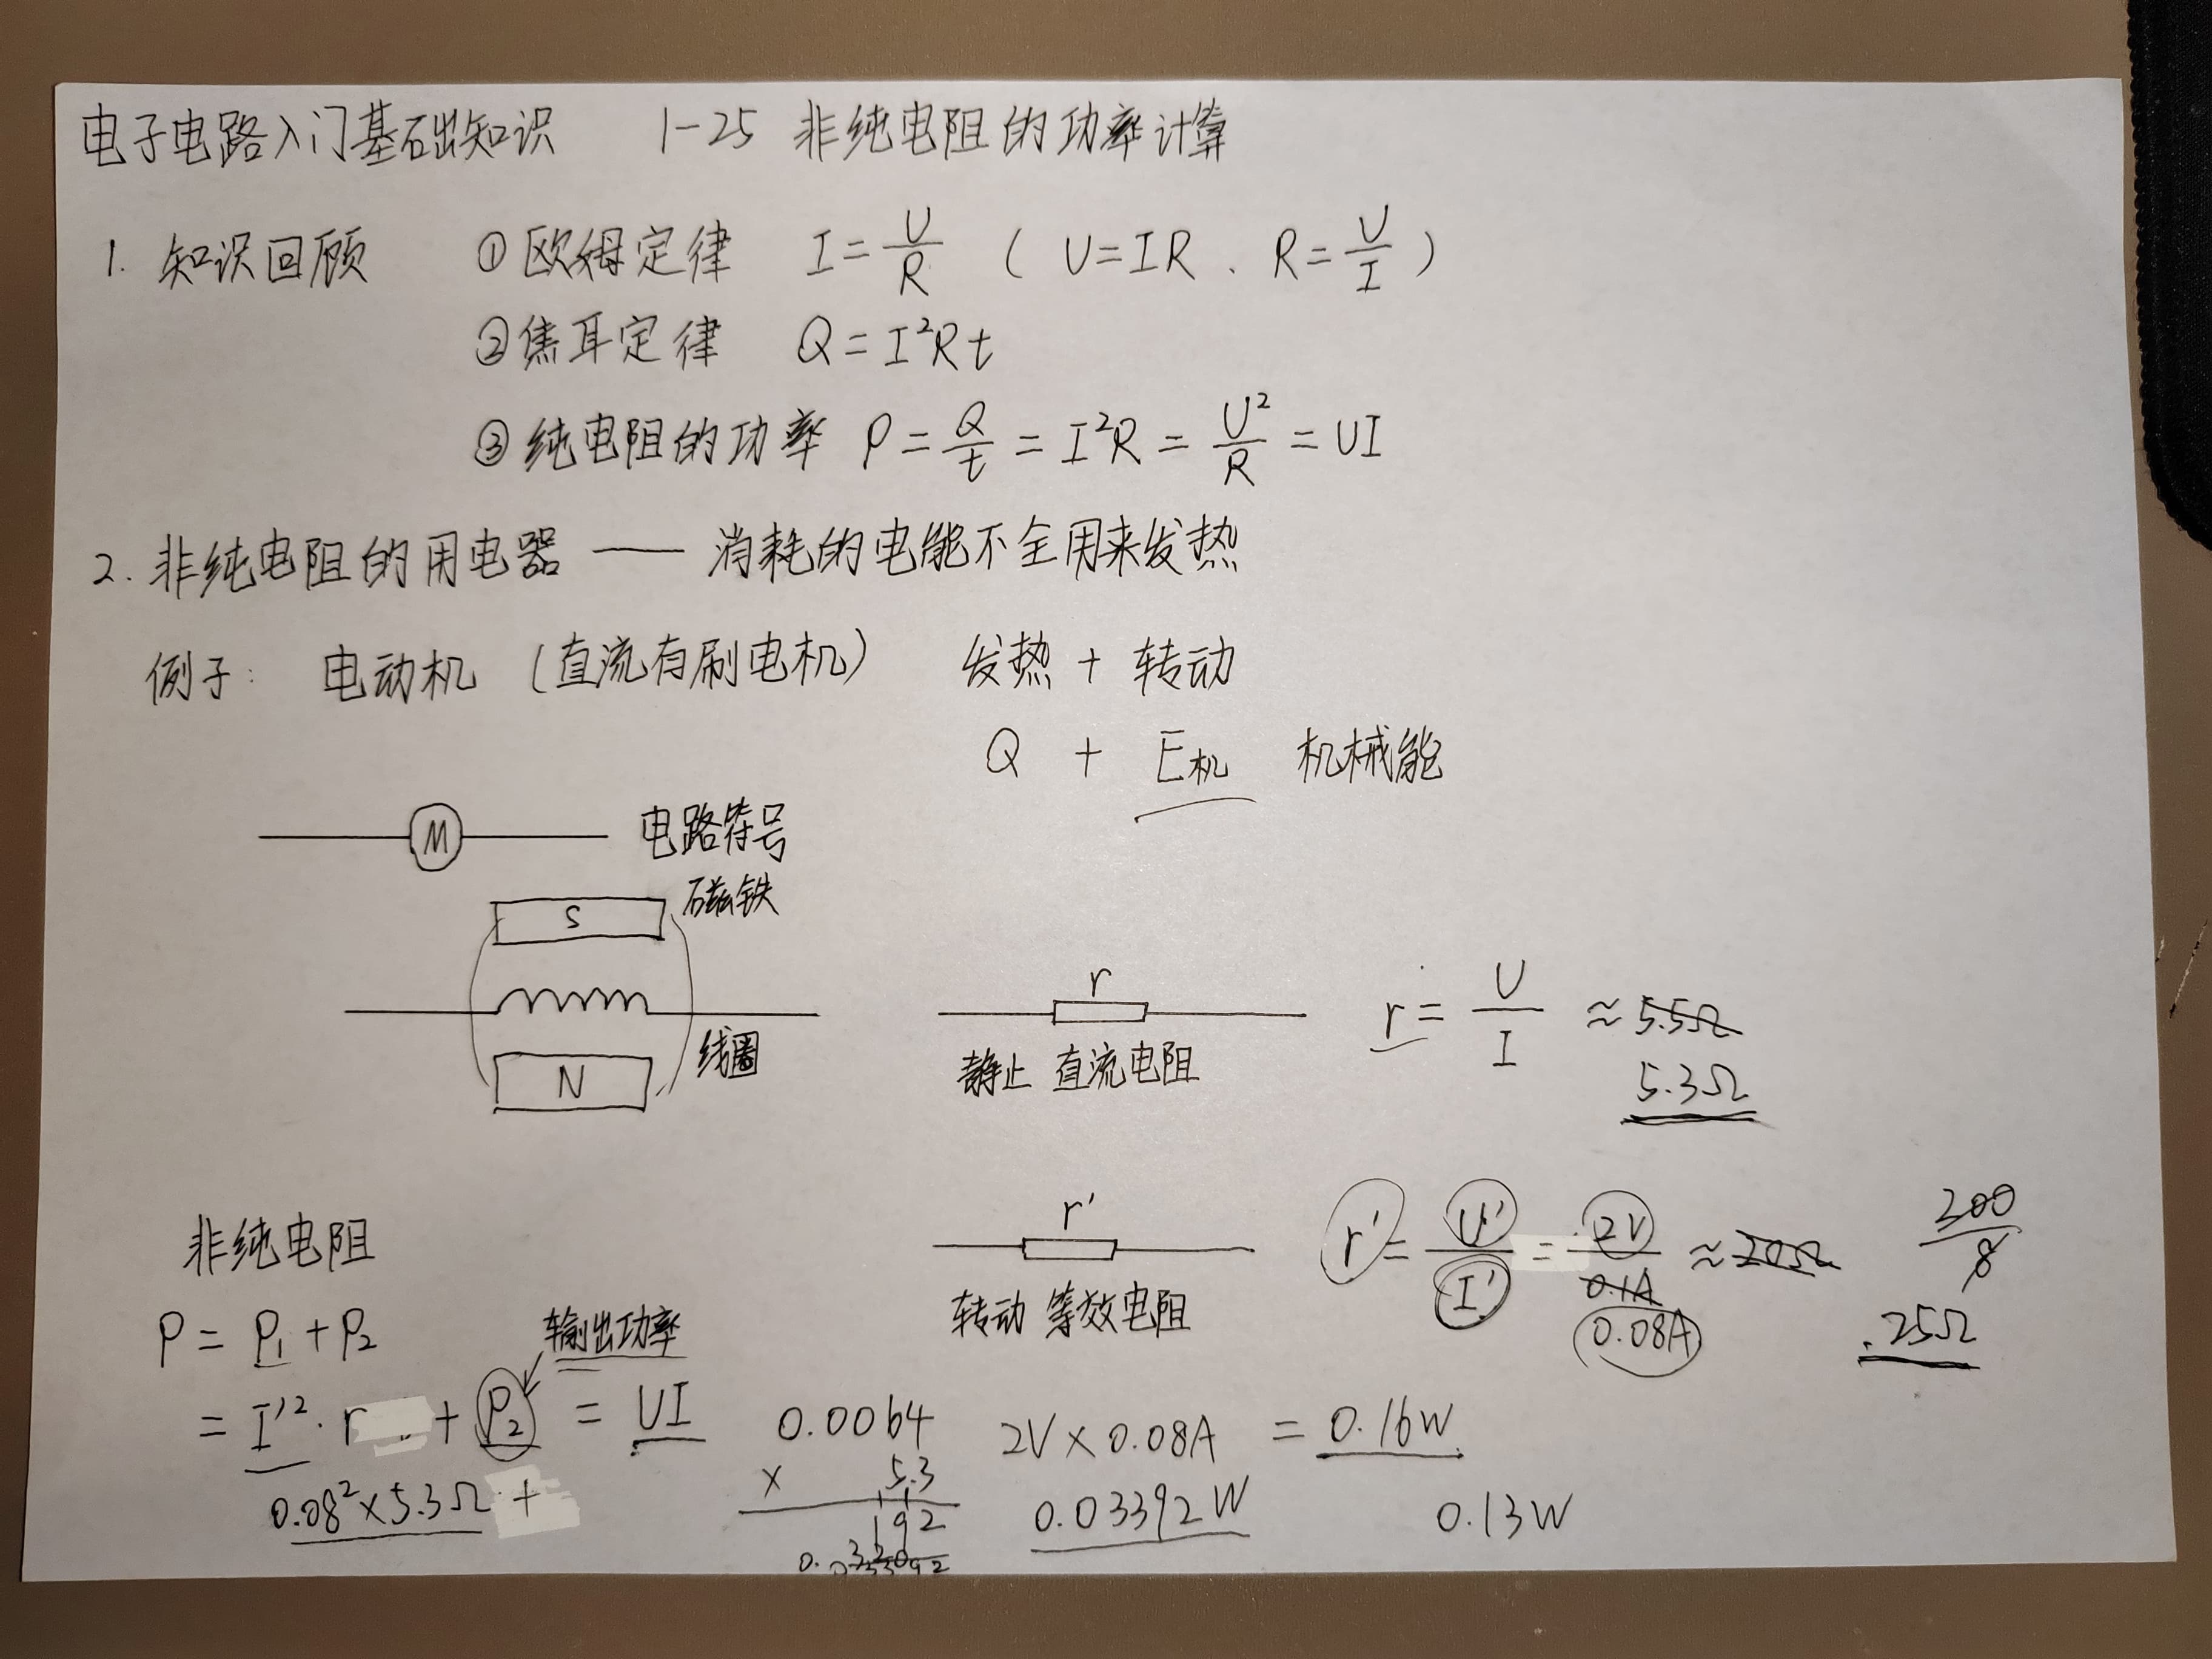 电子电路入门基础知识 1-25 非纯电阻的功率计算
1. 知识回顾 ①欧姆定律 I = U/R ( U=IR 、 R = U/I )
②焦耳定律 Q = I²Rt
③纯电阻的功率 P = Q/t = I²R = U²/R = UI
2. 非纯电阻的用电器 —— 消耗的电能不全用来发热
例子: 电动机 (直流有刷电机) 发热 + 转动
Q + E机 机械能
M 电路符号
S 磁铁
线圈
N
r
静止 直流电阻
r = U/I ≈ 5.5Ω
5.3Ω
r'
转动 等效电阻
r' = U'/I' = 2V/0.1A ≈ 20Ω
0.08A
200/8
25Ω
非纯电阻
P = P₁ + P₂
输出功率
= I'²·r + P₂ = UI
0.08² × 5.3Ω +
0.0064
× 5.3
192
2V × 0.08A = 0.16W
0.03392W 0.13W